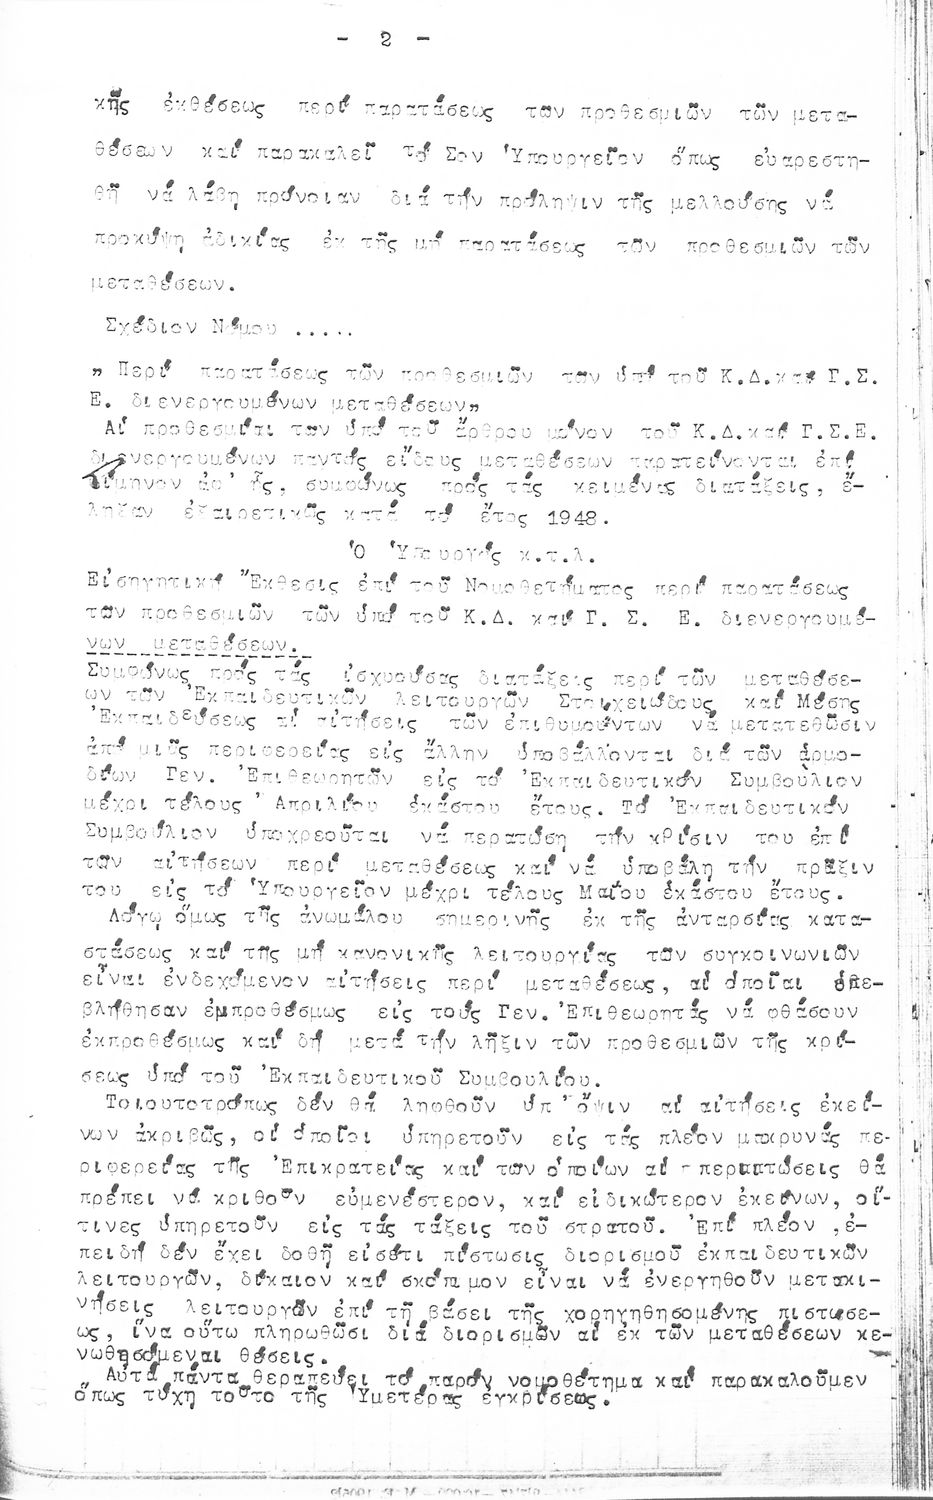 - 2 -
κῆς ἐκθέσεως περί παρατάσεως τῶν προθεσμιῶν τῶν μετα-
θέσεων καί παρακαλεῖ τό Σον Ὑπουργεῖον ὅπως εὐαρεστη-
θῆ νά λάβη πρόνοιαν διά τήν πρόληψιν τῆς μελλούσης νά
προκύψη ἀδικίας ἐκ τῆς μή παρατάσεως τῶν προθεσμιῶν τῶν
μεταθέσεων.
Σχέδιον Νόμου .....
" Περί παρατάσεως τῶν προθεσμιῶν τῶν ὑπό τοῦ Κ.Δ.καί Γ.Σ.
Ε. διενεργουμένων μεταθέσεων"
Αἱ προθεσμίαι τῶν ὑπό τοῦ ἄρθρου μόνον τοῦ Κ.Δ.καί Γ.Σ.Ε.
διενεργουμένων παντός εἴδους μεταθέσεων παρατείνονται ἐπί
δίμηνον ἀφ' ἧς, συμφώνως πρός τάς κειμένας διατάξεις, ἔ-
ληξαν ἐξαιρετικῶς κατά τό ἔτος 1948.
Ὁ Ὑπουργός κ.τ.λ.
Εἰσηγητική Ἔκθεσις ἐπί τοῦ Νομοθετήματος περί παρατάσεως
τῶν προθεσμιῶν τῶν ὑπό τοῦ Κ.Δ. καί Γ. Σ. Ε. διενεργουμέ-
νων μεταθέσεων.
Συμφώνως πρός τάς ἰσχυούσας διατάξεις περί τῶν μεταθέσε-
ων τῶν Ἐκπαιδευτικῶν λειτουργῶν Στοιχειώδους καί Μέσης
Ἐκπαιδεύσεως αἱ αἰτήσεις τῶν ἐπιθυμούντων νά μετατεθῶσιν
ἀπό μιᾶς περιφερείας εἰς ἄλλην ὑποβάλλονται διά τῶν ἁρμο-
δίων Γεν. Ἐπιθεωρητῶν εἰς τό Ἐκπαιδευτικόν Συμβούλιον
μέχρι τέλους Ἀπριλίου ἑκάστου ἔτους. Τό Ἐκπαιδευτικόν
Συμβούλιον ὑποχρεοῦται νά περατώση τήν κρίσιν του ἐπί
τῶν αἰτήσεων περί μεταθέσεως καί νά ὑποβάλη τήν πρᾶξιν
του εἰς τό Ὑπουργεῖον μέχρι τέλους Μαΐου ἑκάστου ἔτους.
Λόγῳ ὅμως τῆς ἀνωμάλου σημερινῆς ἐκ τῆς ἀνταρσίας κατα-
στάσεως καί τῆς μή κανονικῆς λειτουργίας τῶν συγκοινωνιῶν
εἶναι ἐνδεχόμενον αἰτήσεις περί μεταθέσεως, αἱ ὁποῖαι ὑπε-
βλήθησαν ἐμπροθέσμως εἰς τούς Γεν. Ἐπιθεωρητάς νά φθάσουν
ἐκπροθέσμως καί δή μετά τήν λῆξιν τῶν προθεσμιῶν τῆς κρί-
σεως ὑπό τοῦ Ἐκπαιδευτικοῦ Συμβουλίου.
Τοιουτοτρόπως δέν θά ληφθοῦν ὑπ' ὄψιν αἱ αἰτήσεις ἐκεί-
νων ἀκριβῶς, οἱ ὁποῖοι ὑπηρετοῦν εἰς τάς πλέον μακρυνάς πε-
ριφερείας τῆς Ἐπικρατείας καί τῶν ὁποίων αἱ περιπτώσεις θά
πρέπει νά κριθοῦν εὐμενέστερον, καί εἰδικώτερον ἐκείνων, οἵ-
τινες ὑπηρετοῦν εἰς τάς τάξεις τοῦ στρατοῦ. Ἐπί πλέον ,ἐ-
πειδή δέν ἔχει δοθῆ εἰσέτι πίστωσις διορισμοῦ ἐκπαιδευτικῶν
λειτουργῶν, δίκαιον καί σκόπιμον εἶναι νά ἐνεργηθοῦν μετακι-
νήσεις λειτουργῶν ἐπί τῆ βάσει τῆς χορηγηθησομένης πιστώσε-
ως, ἵνα οὕτω πληρωθῶσι διά διορισμῶν αἱ ἐκ τῶν μεταθέσεων κε-
νωθησόμεναι θέσεις.
Αὐτά πάντα θεραπεύει τό παρόν νομοθέτημα καί παρακαλοῦμεν
ὅπως τύχη τοῦτο τῆς Ὑμετέρας ἐγκρίσεως.